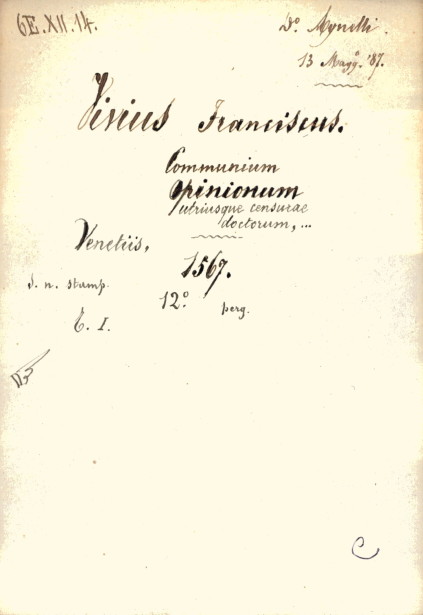 6E.XII.14.
D.º Mynelli.
13 Magg.º '87.
Vivius Franciscus.
Communium
opinionum
utriusque censurae
doctorum, ...
Venetiis,
1567.
s. n. stamp.
12.º perg.
T. I.
C